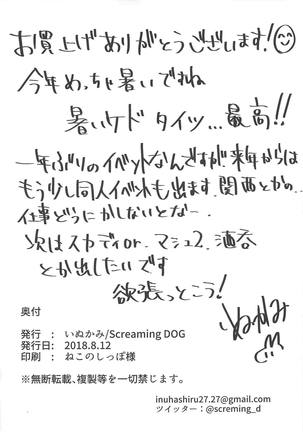 お買上げありがとうございます!
今年めっちゃ暑いですね
暑いケド タイツ…最高!!
一年ぶりのイベントなんですが来年からは
もう少し同人イベントも出ます.関西とかの..
仕事どうにかしないとなー.
次はスカディor.マシュ2.酒呑
とか出したいです
欲張っとこう!
いぬかみ
奥付
発行 : いぬかみ/Screaming DOG
発行日: 2018.8.12
印刷 : ねこのしっぽ様
※無断転載、複製等を一切禁じます。
inuhashiru27.27@gmail.com
ツイッター:@screming_d